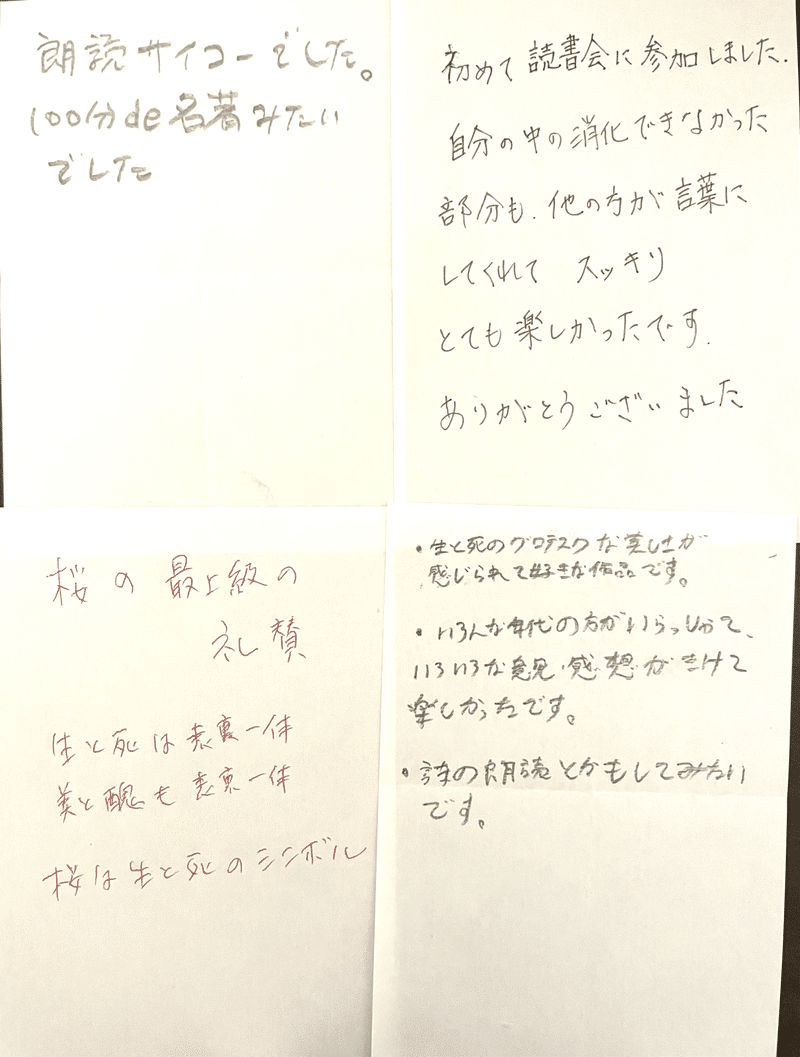 朗読サイコーでした。
100分de名著みたい
でした
初めて読書会に参加しました.
自分の中の消化できなかった
部分も.他の方が言葉に
してくれて スッキリ
とても楽しかったです.
ありがとうございました
桜の最上級の
礼賛
生と死は表裏一体
美と醜も表裏一体
桜は生と死のシンボル
・生と死のグロテスクな美しさが
感じられて好きな作品です。
・いろんな年代の方がいらっしゃて、
いろいろな意見・感想がきけて
楽しかったです。
・詩の朗読とかもしてみたい
です。